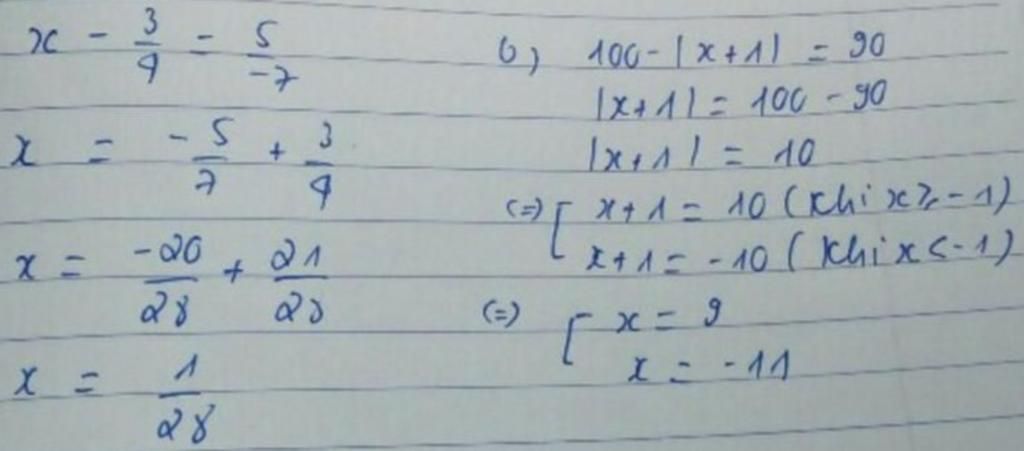 x - 3/4 = 5/-7
x = -5/7 + 3/4
x = -20/28 + 21/28
x = 1/28
b) 100 - |x+1| = 90
|x+1| = 100 - 90
|x+1| = 10
(=) [ x+1 = 10 (khi x ≥ -1)
x+1 = -10 (khi x < -1)
(=) [ x = 9
x = -11